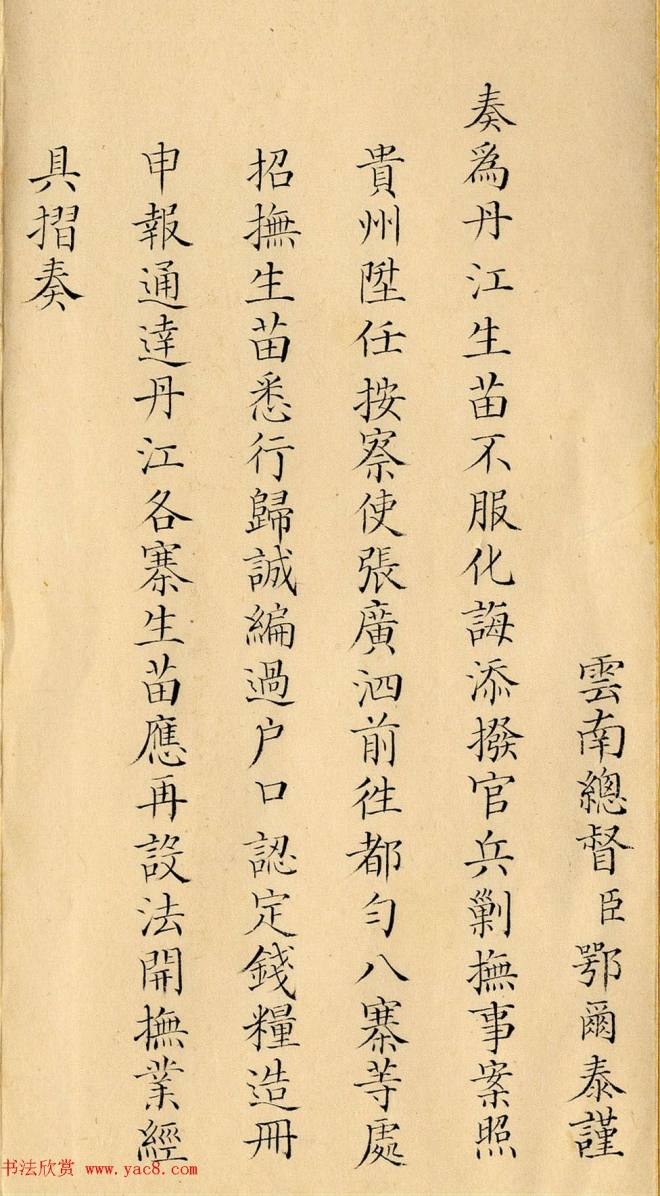 雲南總督臣鄂爾泰謹
奏爲丹江生苗不服化誨添撥官兵剿撫事案照
貴州陞任按察使張廣泗前徃都勻八寨等處
招撫生苗悉行歸誠編過户口認定錢糧造冊
申報通逹丹江各寨生苗應再設法開撫業經
具摺奏
书法欣赏 www.yac8.com